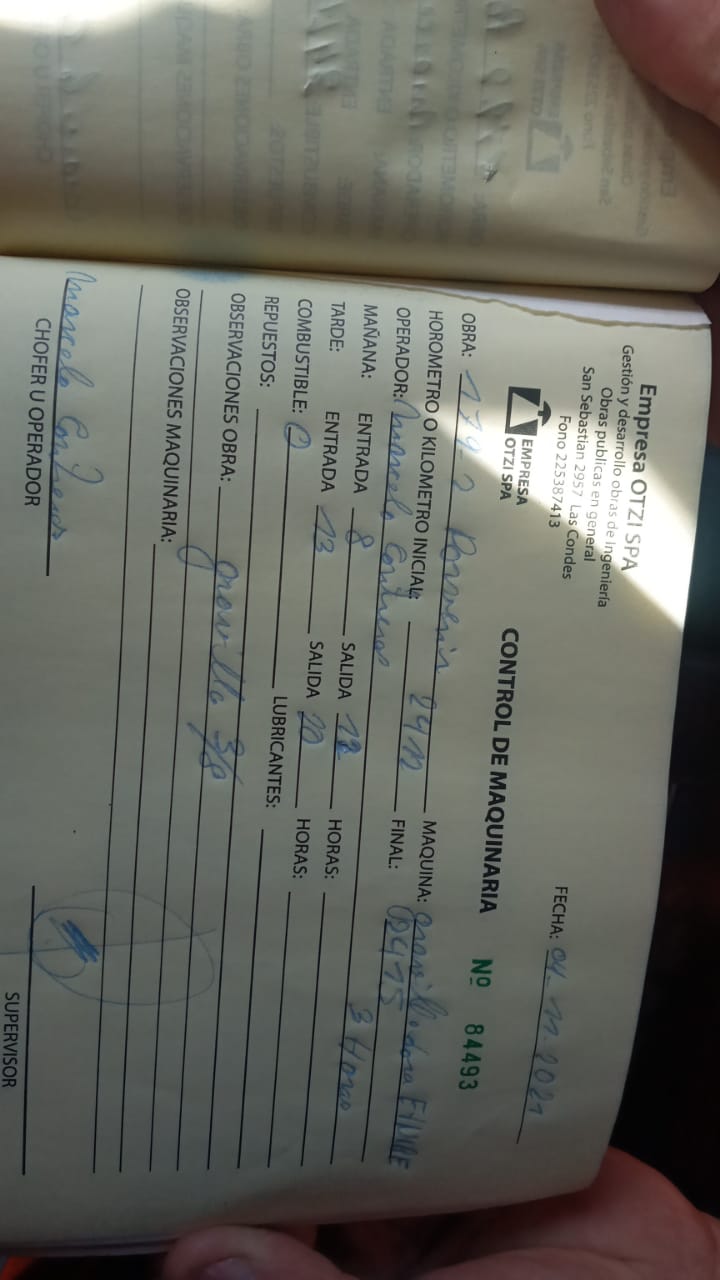 Empresa OTZI SPA
Gestión y desarrollo obras de Ingeniería
Obras publicas en general
San Sebastian 2957 Las Condes
Fono 225387413
EMPRESA
OTZI SPA
FECHA: 04-11-2021
CONTROL DE MAQUINARIA Nº 84493
OBRA: 179-2 Porvenir MAQUINA: gravilladora
HOROMETRO O KILOMETRO INICIAL: 2412 FINAL: 2415
OPERADOR: Marcelo Contreras 3 Horas
MAÑANA: ENTRADA 8 SALIDA 12 HORAS:
TARDE: ENTRADA 13 SALIDA 20 HORAS:
COMBUSTIBLE: 0 LUBRICANTES:
REPUESTOS:
OBSERVACIONES OBRA: gravilla 3/8
OBSERVACIONES MAQUINARIA:
Marcelo Contreras
CHOFER U OPERADOR
SUPERVISOR